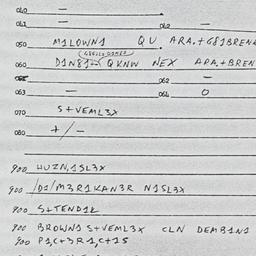 040 —
041 — 042 —
050 M1LOWN1 QU ARA.+G81BREN
060 D1N81 QKNW NEX ARA.+BREN
062 —
063 — 064 O
070 S+VEML3X
080 +/-
900 HUZN,1SL3X
900 /D1/M3R1KAN3R N1SL3X
900 S+TEND1L
900 BROWN1 S+VEML3X CLN DEMB1N1
900 P1,C+3R1,C+1S